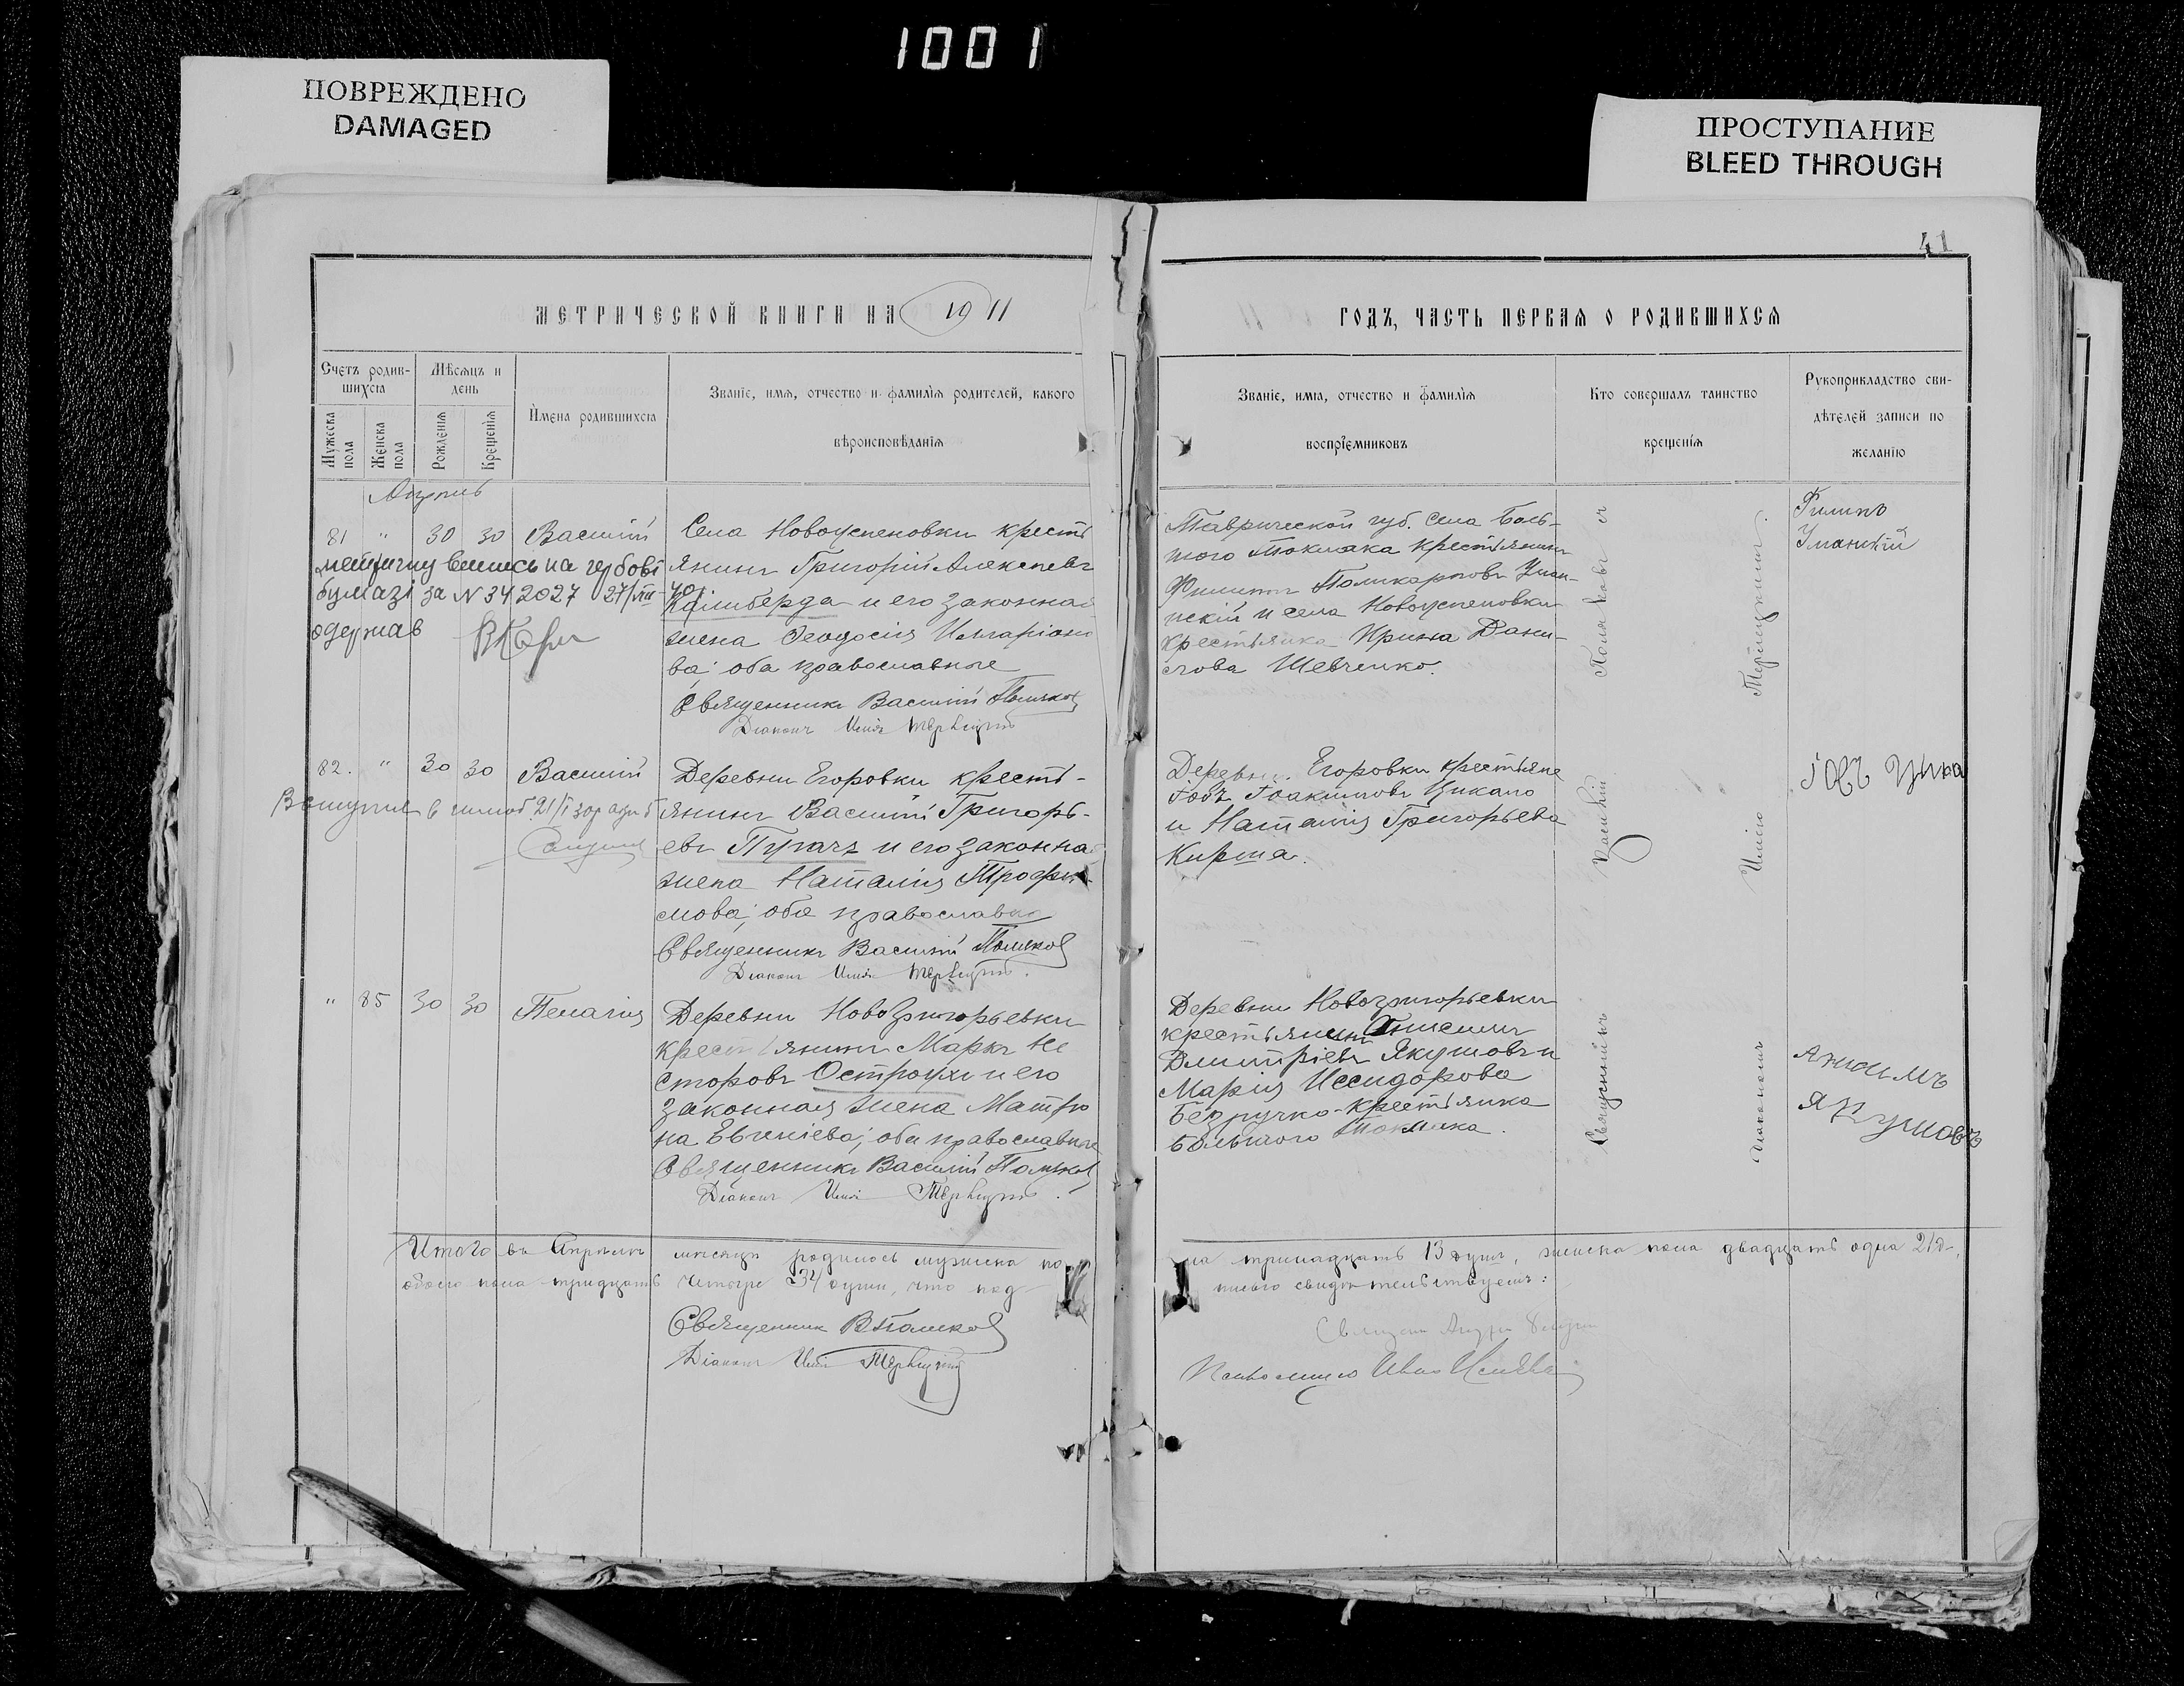 1001
ПОВРЕЖДЕНО
DAMAGED
ПРОСТУПАНИЕ
BLEED THROUGH
41
МЕТРИЧЕСКОЙ КНИГИ НА 1911
ГОДЪ, ЧАСТЬ ПЕРВАЯ О РОДИВШИХСЯ
Счетъ родив-
шихся
Мѣсяцъ и
день
Мужеска
пола
Женска
пола
Рожденія
Крещенія
Имена родившихся
Званіе, имя, отчество и фамилія родителей, какого
вѣроисповѣданія
Званіе, имя, отчество и фамилія
воспріемниковъ
Кто совершалъ таинство
крещенія
Рукоприкладство сви-
дѣтелей записи по
желанію
81 " 30 30 Василій
на гербові
за N 342027 27/VIII-
одержав
Села Новоуспеновки кресть
янинъ Григорій Алексѣевъ
и его законная
жена Ѳеодосія Илларіоно
ва; оба православные
Священникъ Василій Поляковъ
Діаконъ Илія
Таврической губ. села Боль-
шого Токмака крестьянинъ
Филиппъ Поликарповъ Уман-
скій и села Новоуспеновки
крестьянка Ирина Дани-
лова Шевченко.
Филипъ
Уманский
82. " 30 30 Василій
Деревни Егоровки кресть-
янинъ Василій Григорь-
евъ Пугачъ и его законная
жена Наталія Трофи-
мова; оба православные
Священникъ Василій Поляковъ
Діаконъ Илія
Деревни Егоровки крестьяне
Іовъ Іоакимовъ Цикало
и Наталія Григорьева
Кирпа.
" 85 30 30 Пелагія
Деревни Новогригорьевки
крестьянинъ Маркъ Не
сторовъ Остроухъ и его
законная жена Матро
на Евгеніева; оба православные
Священникъ Василій Поляковъ
Діаконъ Илія
Деревни Новогригорьевки
крестьянинъ Онисимъ
Димитріевъ Якушовъ и
Марія Исидорова
Безручко-крестьянка
Большого Токмака.
Анисимъ
Якушовъ
Священникъ Василій Поляковъ
Діакономъ Иліею
Итого въ Апрѣлѣ мѣсяцѣ родилось мужеска по
ла тринадцать 13 душъ, женска пола двадцать одна 21 д.,
обоего пола тридцать четыре 34 души, что под
писью свидѣтельствуемъ:
Священник В Поляков
Діаконъ Илія